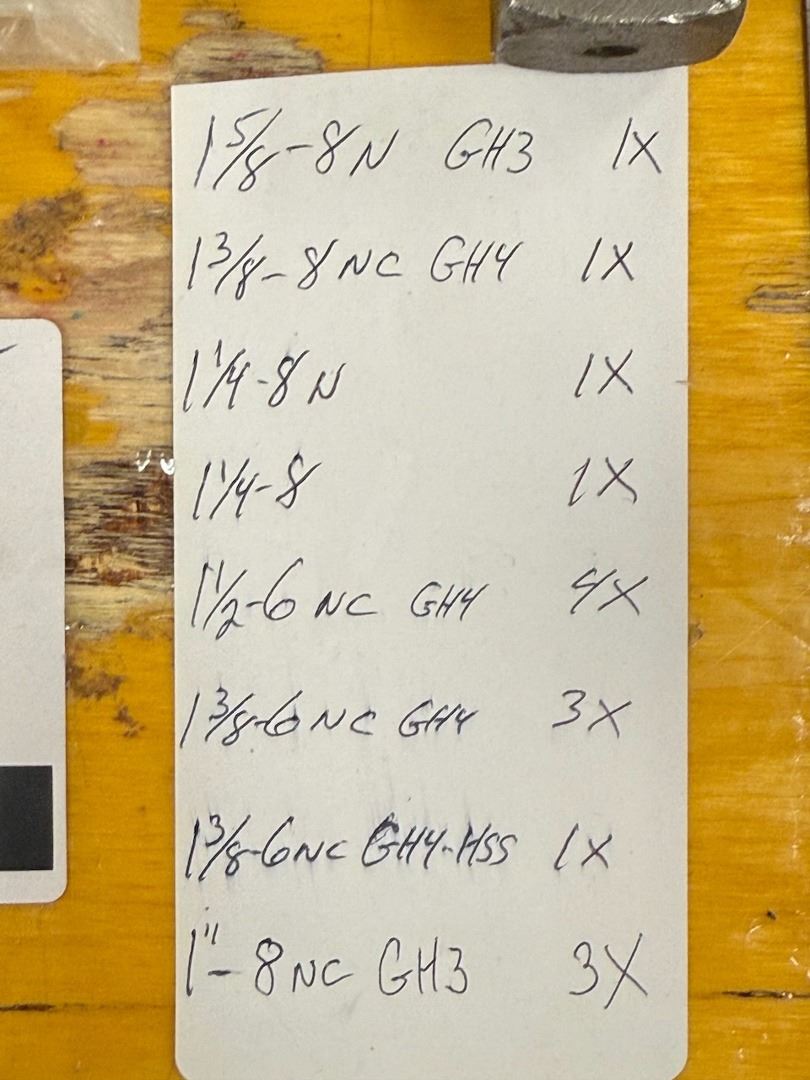 1 5/8-8N GH3 1X
1 3/8-8NC GH4 1X
1 1/4-8N 1X
1 1/4-8 1X
1 1/2-6 NC GH4 4X
1 3/8-6 NC GH4 3X
1 3/8-6NC GH4-HSS 1X
1"-8NC GH3 3X